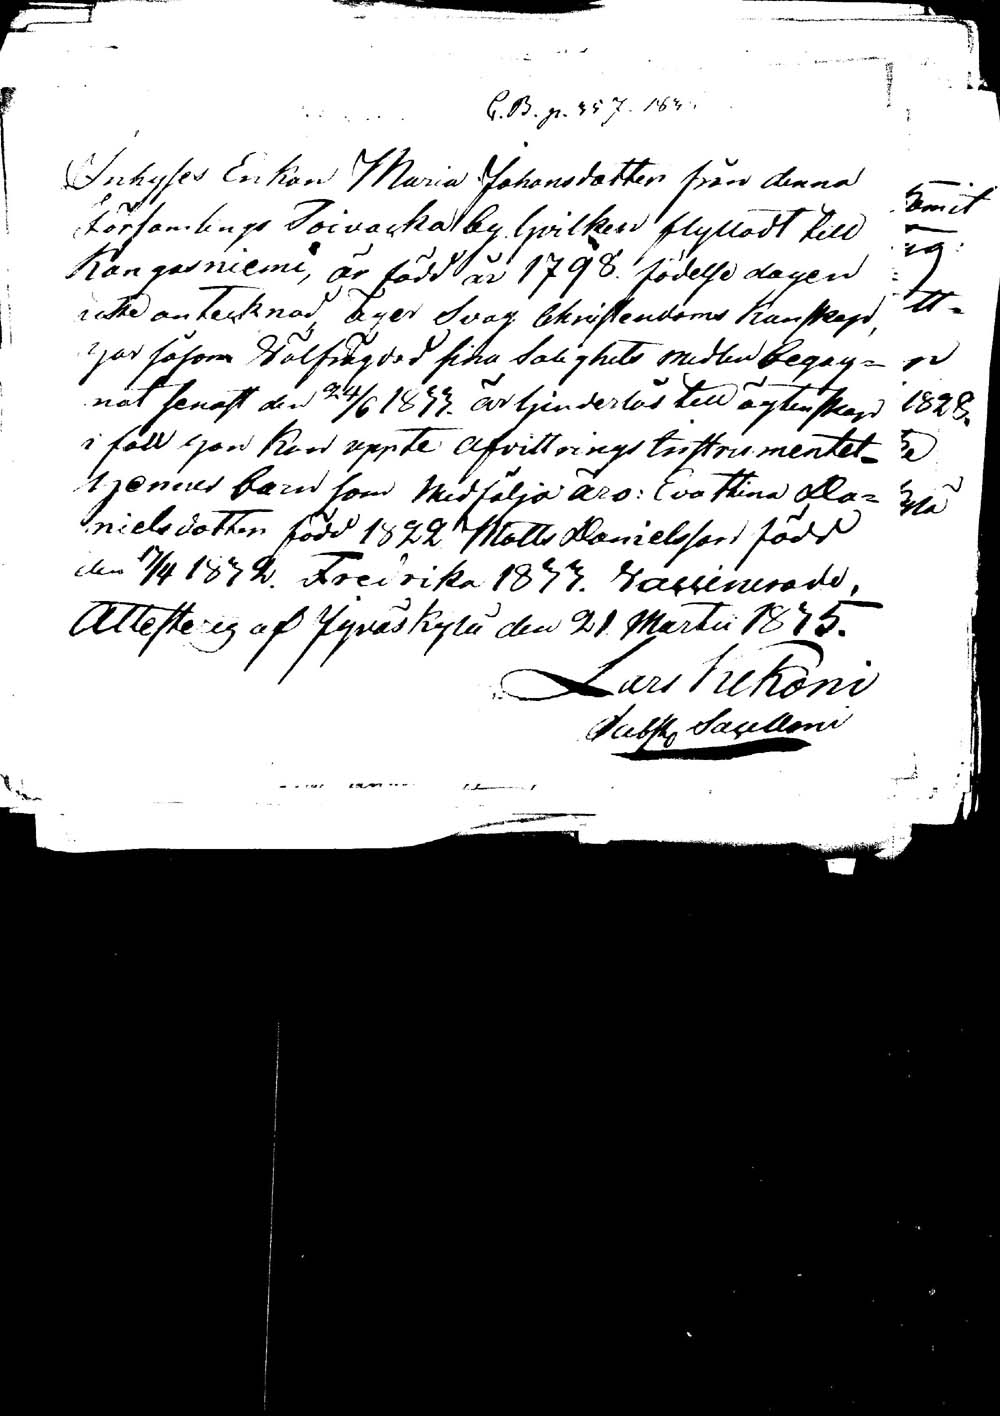 C.B. p. 357. 183
Inhyses Enkan Maria Johansdotter från denna
Församlings Toivacka by hvilken flyttadt till
Kangasniemi, är född år 1798. födelse dagen
icke antecknad, äger svag Christendoms kunskap,
har såsom Välfrägdad sina Salighets medlen begag=
nat senast den 24/6 1833. är hinderlös till ägtenskap
i fall hon kan uppte Afvittrings Instrumentet_
hennes barn som medfölja äro: Eva Stina Da=
nielsdotter född 1822 Matts Danielsson född
den 17/4 1832. Fredrika 1833. Vaccinerade,
Attesterej af Jyväskylä den 21 Martii 1835.
Lars
Sacellani
tt=
1828.